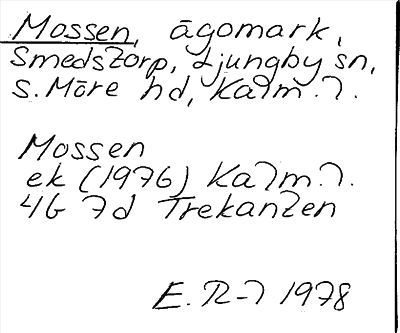 Mossen, ägomark,
Smedstorp, Ljungby sn,
S. Möre hd, Kalm. l.
Mossen
ek (1976) Kalm. l.
4G 7d Trekanten
E. R-l 1978